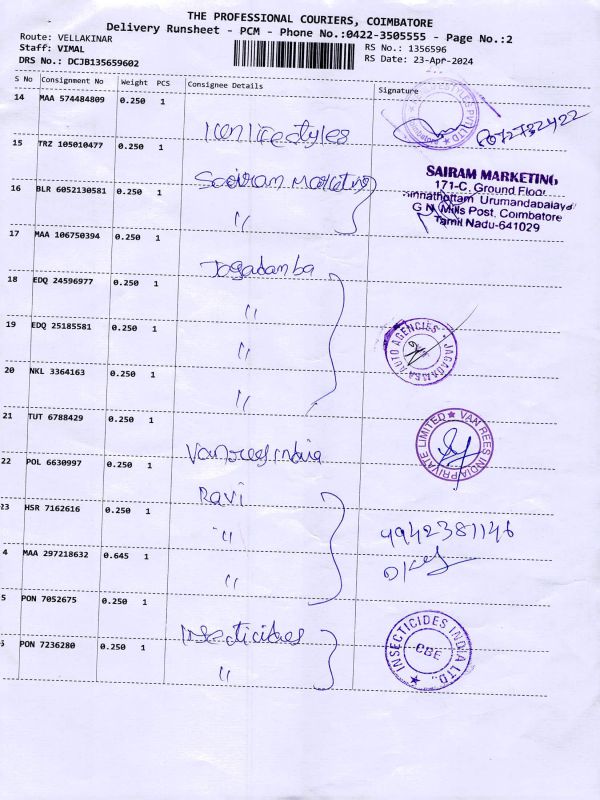 THE PROFESSIONAL COURIERS, COIMBATORE
Delivery Runsheet - PCM - Phone No.:0422-3505555 - Page No.:2
Route: VELLAKINAR
Staff: VIMAL
DRS No.: DCJB135659602
RS No.: 1356596
RS Date: 23-Apr-2024
S No Consignment No Weight PCS Consignee Details Signature
14 MAA 574484809 0.250 1
lifestyles
15 TRZ 105010477 0.250 1
Sairam Marketing
SAIRAM MARKETING
171-C, Ground Floor
Urumandapalaya
G N Mills Post, Coimbatore
Tamil Nadu-641029
16 BLR 6052130581 0.250 1
"
17 MAA 106750394 0.250 1
Jagadamba
18 EDQ 24596977 0.250 1
"
19 EDQ 25185581 0.250 1
"
JAGADAMBA AUTO AGENCIES
20 NKL 3364163 0.250 1
"
21 TUT 6788429 0.250 1
Vanrees india
VAN REES INDIA PRIVATE LIMITED
22 POL 6630997 0.250 1
Ravi
23 HSR 7162616 0.250 1
"
9942381146
4 MAA 297218632 0.645 1
"
5 PON 7052675 0.250 1
Insecticides
INSECTICIDES INDIA LTD.,
CBE
PON 7236280 0.250 1
"